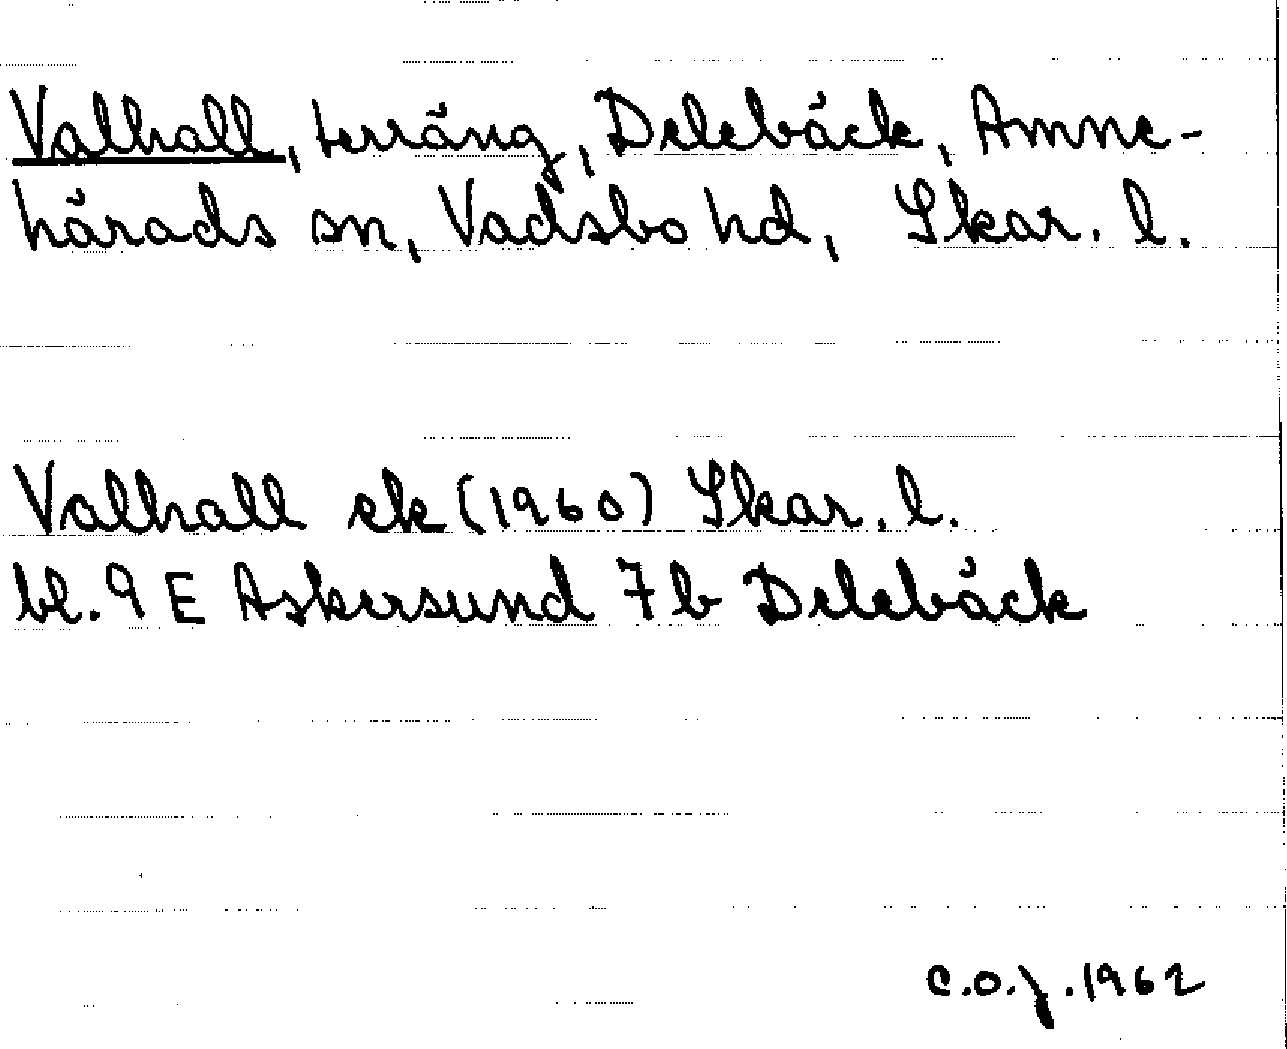 Valhall, terräng, Delebäck, Amne-
härads sn, Vadsbo hd, Skar. l.
Valhall ek (1960) Skar. l.
bl. 9 E Askersund 7 b Delebäck
C.O.J. 1962